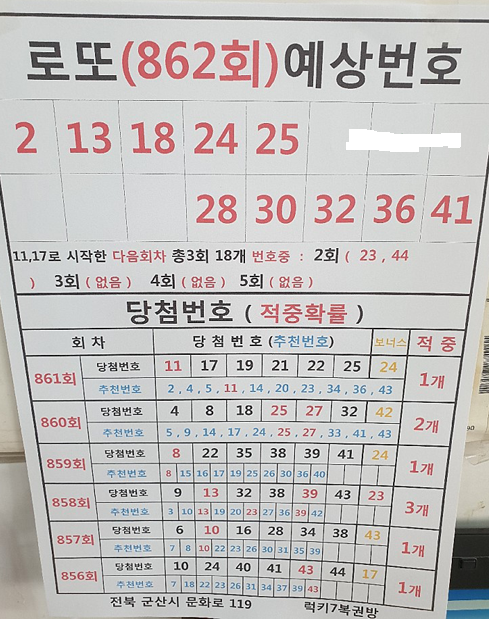 로또(862회)예상번호
2 13 18 24 25
28 30 32 36 41
11,17로 시작한 다음회차 총3회 18개 번호중 : 2회( 23 , 44
) 3회( 없음 ) 4회( 없음 ) 5회( 없음 )
당첨번호 ( 적중확률 )
회 차 당 첨 번 호 (추천번호) 보너스 적 중
861회 당첨번호 11 17 19 21 22 25 24 1개
추천번호 2 , 4 , 5 , 11 , 14 , 20 , 23 , 34 , 36 , 43
860회 당첨번호 4 8 18 25 27 32 42 2개
추천번호 5 , 9 , 14 , 17 , 24 , 25 , 27 , 33 , 41 , 43
859회 당첨번호 8 22 35 38 39 41 24 1개
추천번호 8 15 16 17 19 25 26 30 36 40
858회 당첨번호 9 13 32 38 39 43 23 3개
추천번호 3 10 13 19 20 23 27 36 39 42
857회 당첨번호 6 10 16 28 34 38 43 1개
추천번호 7 8 10 22 23 26 30 31 35 39
856회 당첨번호 10 24 40 41 43 44 17 1개
추천번호 7 18 22 23 26 31 34 37 39 43
전북 군산시 문화로 119 럭키7복권방